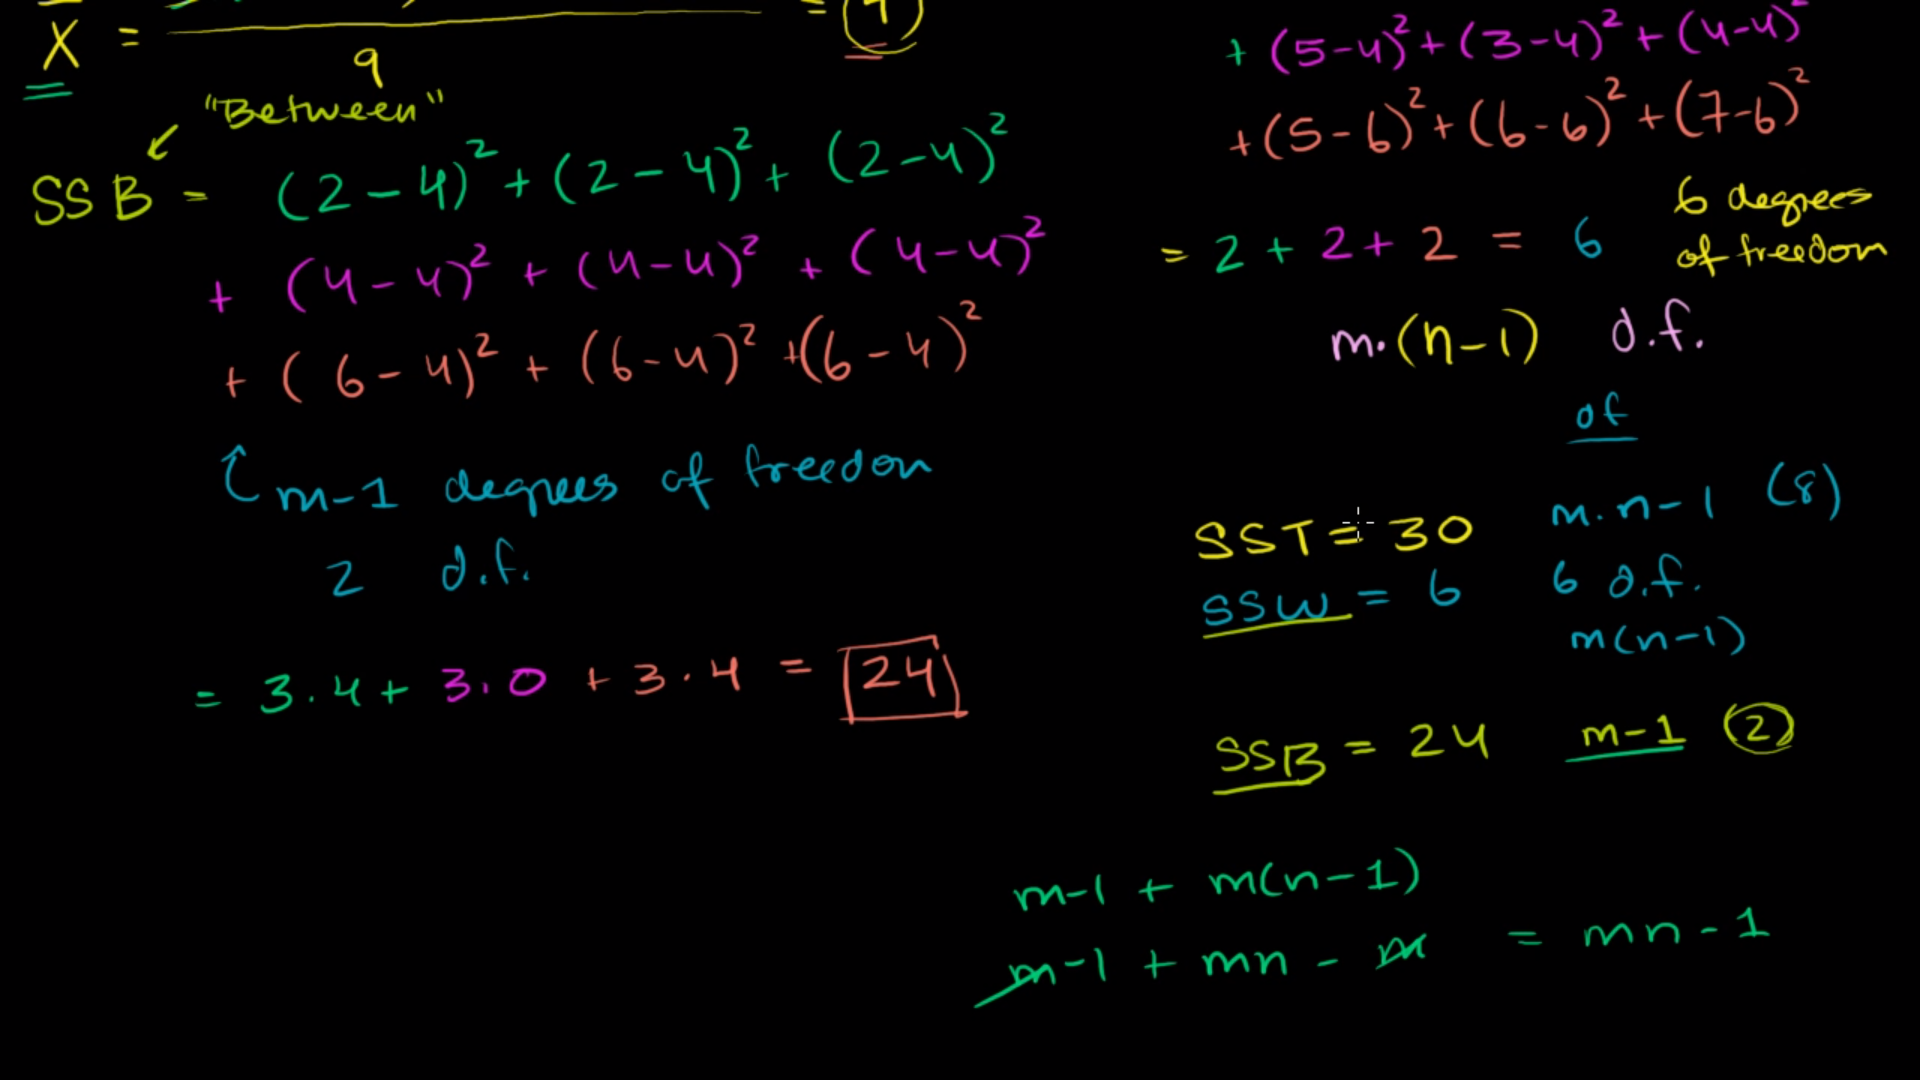 X̄ = 9 = 4
"Between"
SSB = (2-4)² + (2-4)² + (2-4)²
+ (4-4)² + (4-4)² + (4-4)²
+ (6-4)² + (6-4)² + (6-4)²
m-1 degrees of freedom
2 d.f.
= 3·4 + 3·0 + 3·4 = 24
+ (5-4)² + (3-4)² + (4-4)²
+ (5-6)² + (6-6)² + (7-6)²
= 2 + 2 + 2 = 6 6 degrees
of freedom
m·(n-1) d.f.
df
SST = 30 m·n-1 (8)
SSW = 6 6 d.f.
m(n-1)
SSB = 24 m-1 2
m-1 + m(n-1)
m-1 + mn - m = mn-1